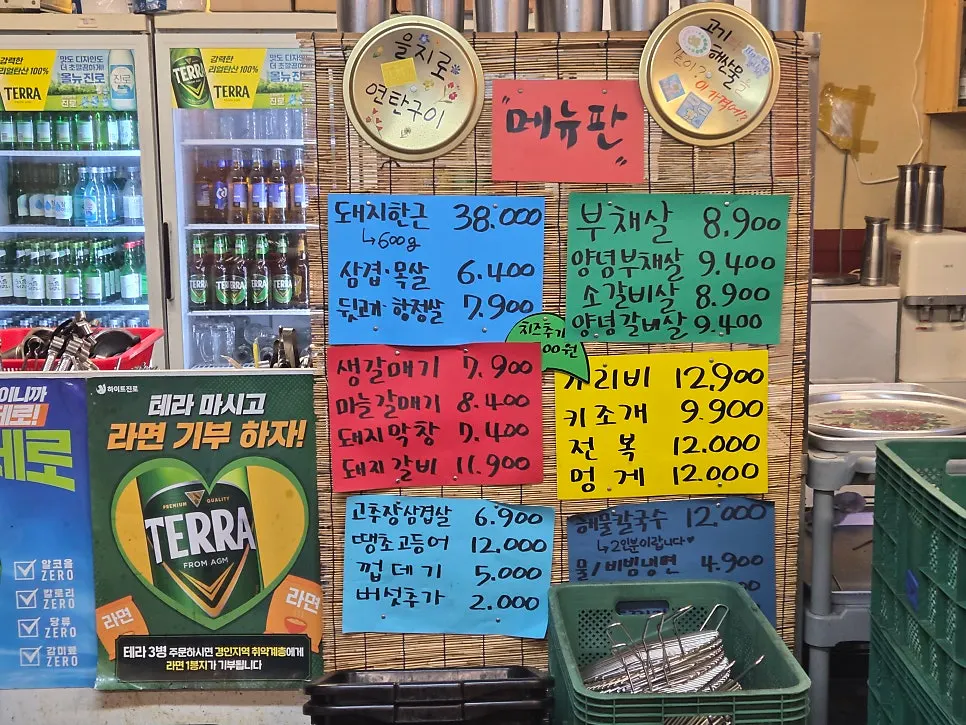 강력한
리얼탄산 100%
TERRA
맛도 디자인도
더 초깔끔하게!
올뉴진로
진로
TERRA
강력한
리얼탄산 100%
TERRA
맛도 디자인도
더 초깔끔하게!
올뉴진로
을지로
연탄구이
고기
해산물
"메뉴판"
돼지한근 38.000
↳600g
삼겹·목살 6.400
뒷고기·항정살 7.900
부채살 8.900
양념부채살 9.400
소갈비살 8.900
양념갈비살 9.400
치즈추가
00원
생갈매기 7.900
마늘갈매기 8.400
돼지막창 7.400
돼지갈비 11.900
가리비 12,900
키조개 9.900
전복 12.000
멍게 12.000
고추장삼겹살 6.900
땡초고등어 12.000
껍데기 5.000
버섯추가 2.000
해물칼국수 12.000
↳2인분이랍니다♥
물/비빔냉면 4.900
이니까
제로!
제로
알코올
ZERO
칼로리
ZERO
당류
ZERO
감미료
ZERO
하이트진로
테라 마시고
라면 기부 하자!
PREMIUM QUALITY
TERRA
FROM AGM
라면
라면
테라 3병 주문하시면 경인지역 취약계층에게
라면 1봉지가 기부됩니다